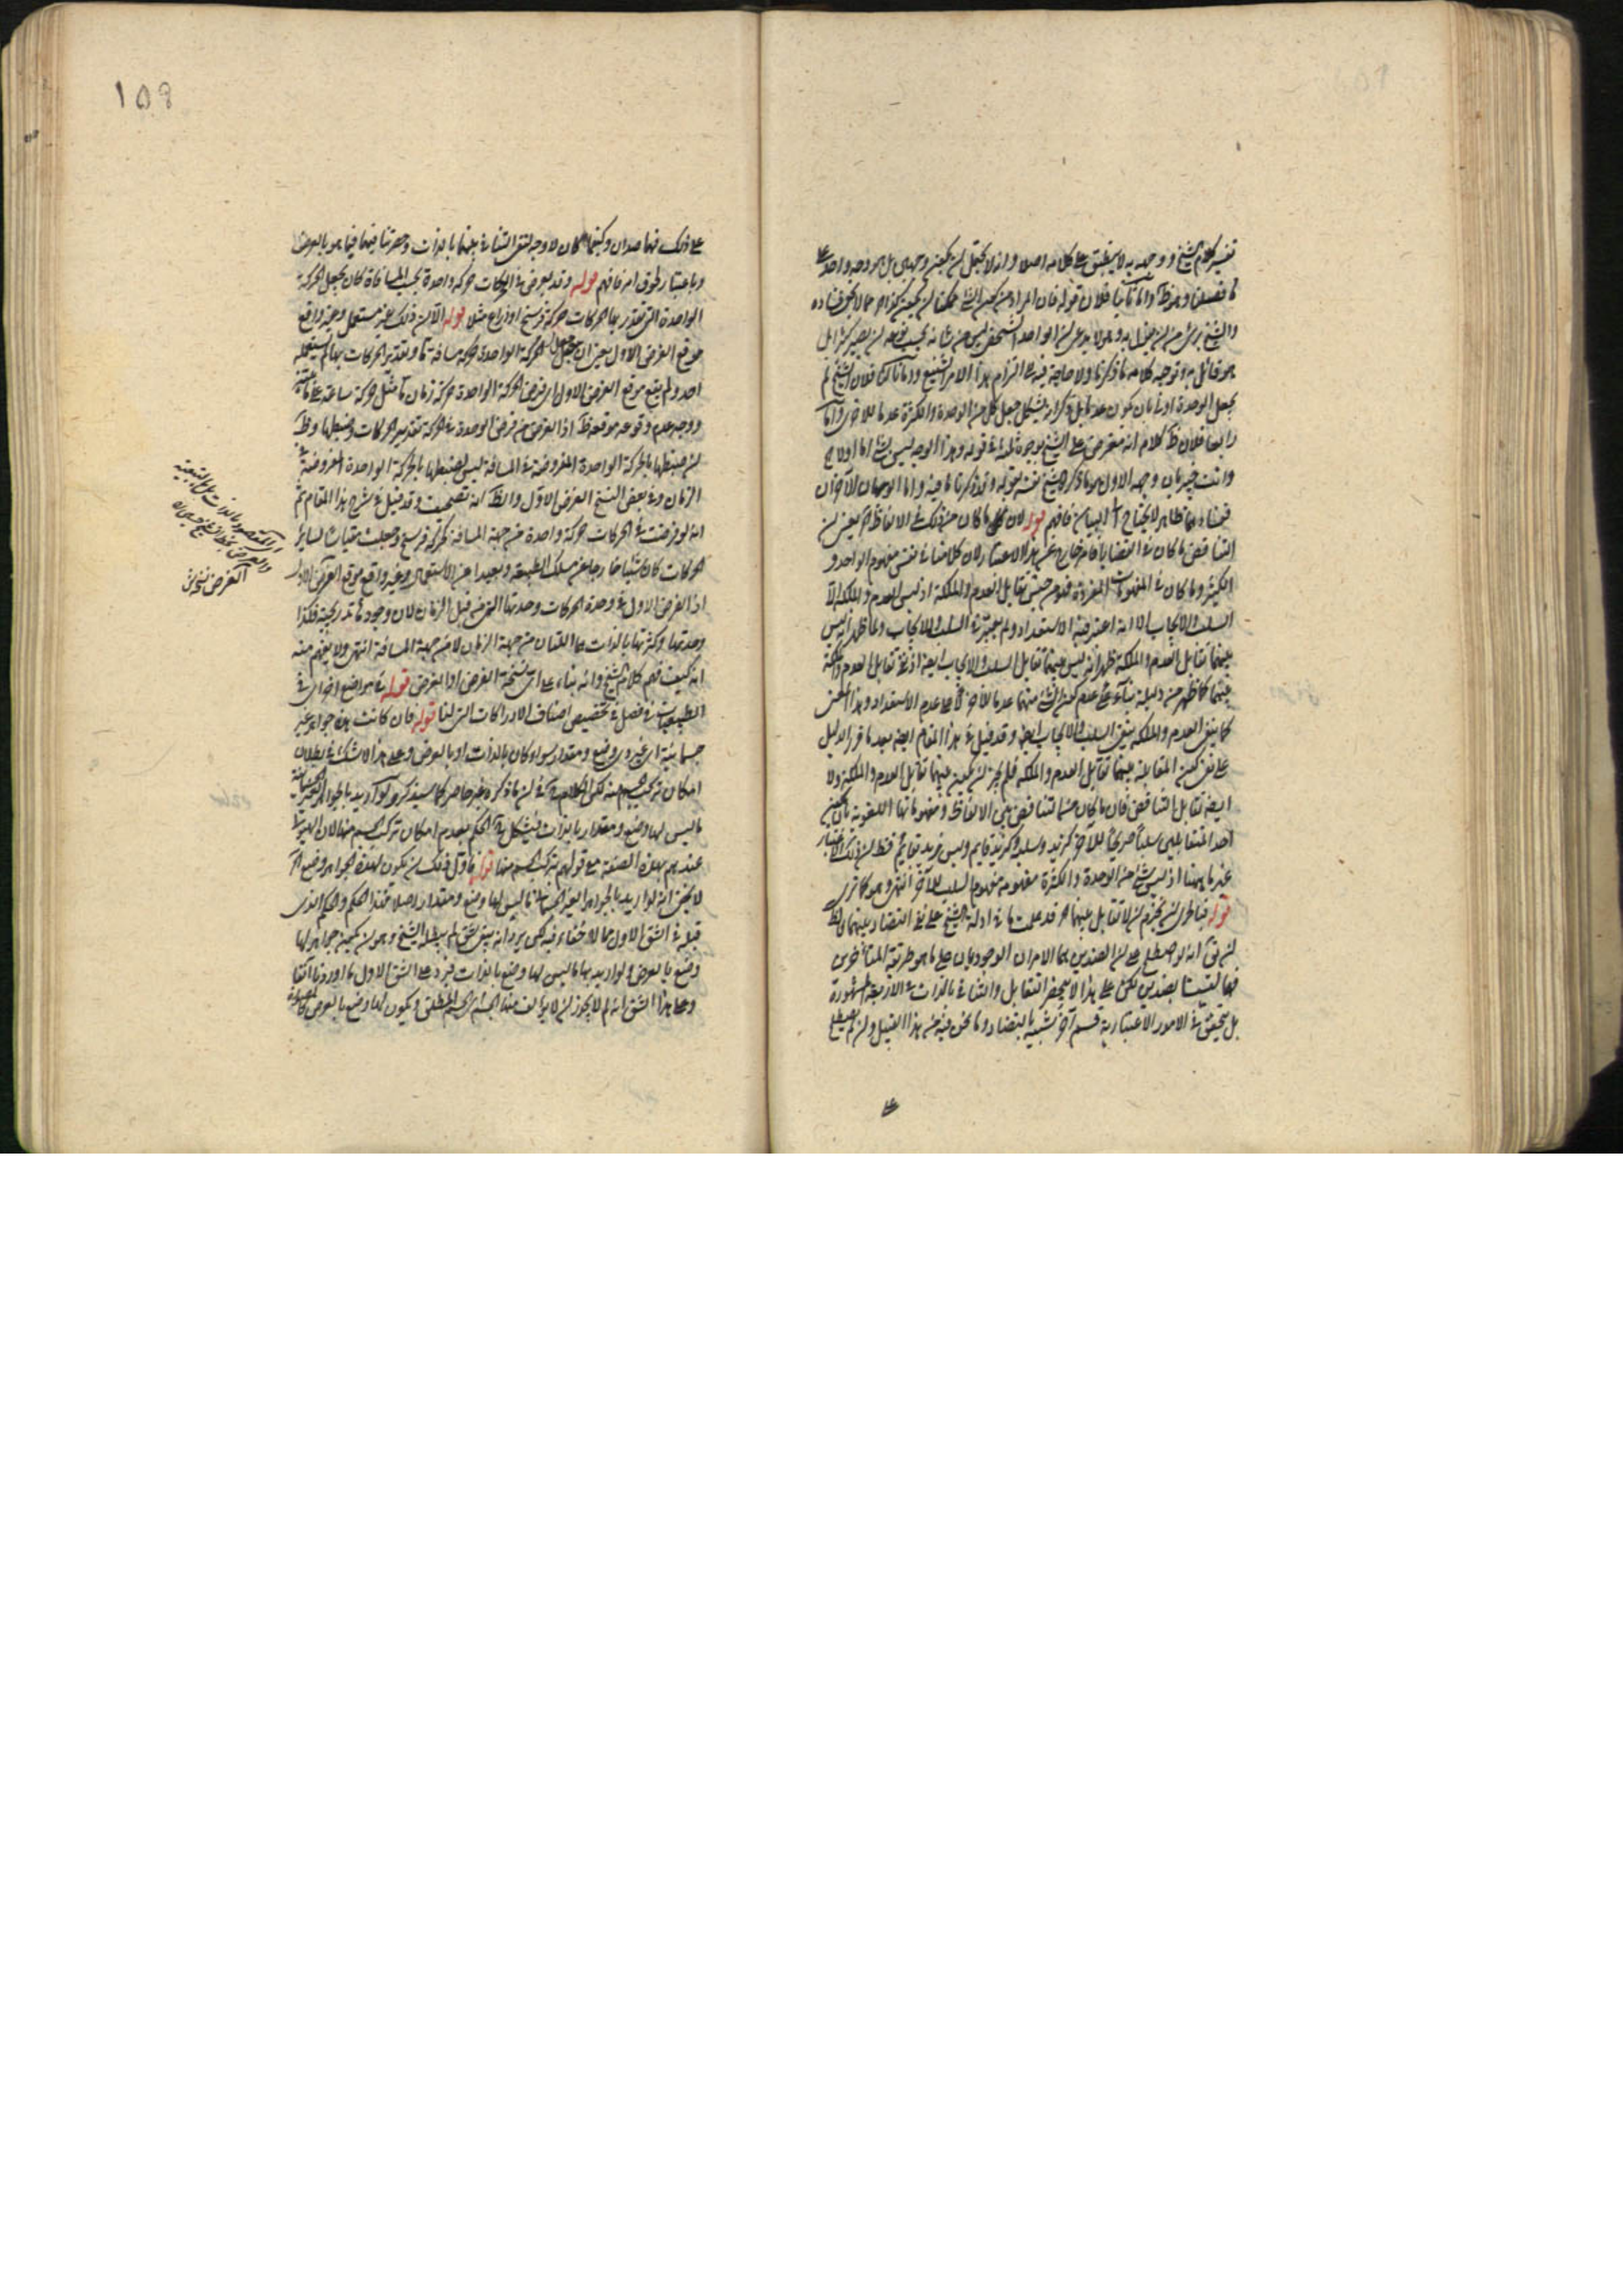 تفسير كلام الشيخ ووجهه به لا ينطبق على كلامه اصلا وانه لا يحتمل ان يكون وجهين بل هو وجه واحد على
ما فصلنا وهو ظ واما ثانيا فلان قوله فان المراد من كون الشئ ممكنا ان يكون كذا مما لا يخفى فساده
والشيخ برئ من ان يقول به وهو لا يدعى ان الواحد الشخصى ليس من شانه بحسب نوعه ان يصير كثيرا بل
هو قائل به وتوجيه كلامه ما ذكرنا ولا حاجة فيه الى التزام هذا الامر الشنيع واما ثالثا فلان الشيخ لم
يجعل الوحدة اولى بان يكون عدما بل ذكر انه يشكل جعل كل من الوحدة والكثرة عدما للاخرى واما
رابعا فلان ظ كلامه انه معترض على الشيخ بوجوه ثلثة فى قوله وهذا الوجه ليس بشئ اما اولا
وانت خبير بان وجهه الاول هو ما ذكره الشيخ نفسه بقوله وقد ذكرنا ما فيه واما الوجهان الآخران
ففسادهما ظاهر لا يحتاج الى البيان فافهم قوله لان ما كان من ذلك فى الالفاظ اه يعنى ان
التناقض ما كان فى القضايا فانه خارج عن هذا الاعتبار لان كلامنا فى نفس مفهوم الواحد و
الكثير وما كان فى المفهومات المفردة فهو من جنس تقابل العدم والملكة اذ ليس العدم والملكة الا
السلب والايجاب الا انه اعتبر فيه الاستعداد ولم يعتبر فى السلب والايجاب ولما ظهر انه ليس
بينهما تقابل العدم والملكة ظهر انه ليس بينهما تقابل السلب والايجاب ايضا اذ نفى تقابل العدم والملكة
بينهما كما ظهر من دليله بناء على عدم كون الشئ منهما عدما للآخر لا على عدم الاستعداد وهذا المعنى
كما ينفى العدم والملكة ينفى السلب والايجاب ايضا وقد قيل فى هذا المقام ايضا بعد ما قرر الدليل
على نفى كون المقابلة بينهما تقابل العدم والملكة فلم يجز ان يكون بينهما تقابل العدم والملكة ولا
ايضا تقابل التناقض فان ما كان منه التناقض بين الالفاظ ومفهوماتها اللغوية بان يكون
احد المتقابلين سلبا صريحا للآخر كزيد وسلبه وكزيد قايم وليس زيد بقايم فقط لان ذلك الاعتبار
غير ما ههنا اذ ليس شئ من الوحدة والكثرة مفهومه مفهوم السلب للآخر انتهى وهو كما ترى
قوله فبالحرى ان نجزم ان لا تقابل بينهما اه قد علمت ما فى ادلة الشيخ على نفى التضاد بينهما والظ
ان يق انه لو اصطلح على ان الضدين هما الامران الوجوديان على ما هو طريقة المتأخرين
فهما ليسا بضدين لكن على هذا لا ينحصر التقابل والتنافى بالذات فى الاربعة المشهورة
بل يتحقق فى الامور الاعتبارية قسم آخر شبيه بالتضاد وما نحن فيه من هذا القبيل وان لم يصطلح
على
108
على ذلك فهما ضدان وكيفما كان لا وجه لنفى التنافى بينهما بالذات وحصر تنافيهما فيما هو بالعرض
وباعتبار لحوق امر فافهم قوله وقد يعرض فى الحركات حركة واحدة بحسب المسافة كان يجعل الحركة
الواحدة التى تقدر بها الحركات حركة فرسخ او ذراع مثلا قوله الا ان ذلك غير مستعمل وغير واقع
موقع الفرض الاول يعنى ان جعل الحركة الواحدة حركة مسافة ما وتقدير الحركات بها لم يستعمله
احد ولم يقع موقع الفرض الاول اى فرض الحركة الواحدة حركة زمان ما مثل حركة ساعة
ووجه عدم وقوعه موقعه ظ اذ الغرض من فرض الوحدة فى الحركة تقدير الحركات وضبطها وظ
ان ضبطها بالحركة الواحدة المفروضة فى المسافة ليس كضبطها بالحركة الواحدة المفروضة فى
الزمان وفى بعض النسخ الغرض الاول والظ انه تصحيف وقد قيل فى شرح هذا المقام ثم
انه لو فرضت فى الحركات حركة واحدة من جهة المسافة كحركة فرسخ وجعلت مقياسا لسائر
الحركات كان شيئا خارجا عن مسلك الطبيعة وبعيدا عن الاستعمال وغير واقع موقع الغرض الاول
اذ الغرض الاول فى وحدة الحركات وحدتها التى من قبل الزمان لان وجودها تدريجية فكذا
وحدتها وكثرتها بالذات هما اللتان من جهة الزمان لا من جهة المسافة انتهى ولا يفهم منه
انه كيف فهم كلام الشيخ وانه بناء على اى نسخة الفرض او الغرض قوله فى مواضع اخرى فى
الطبيعيات فى فصل فى تخصيص اصناف الادراكات التى لنا قوله فان كانت هذه جواهر غير
جسمانية اى غير ذى وضع ومقدار سواء كان بالذات او بالعرض وعلى هذا لا شك فى بطلان
امكان تركب الجسم منه لكن الكلام فى ان ما ذكره غير حاصر كما سيذكره ولو اريد بالجواهر الغير الجسمانية
ما ليس لها وضع ومقدار بالذات فيشكل الحكم بعدم امكان تركب الجسم منها لان الهيولى
عندهم بهذه الصفة مع قولهم بتركب الجسم منها قوله فاول ذلك ان يكون لهذه الجواهر وضع اه
لا يخفى انه لو اريد بالجواهر الغير الجسمانية ما ليس لها وضع ومقدار اصلا فهذا الحكم والحكم الذى
قبله فى الشق الاول مما لا خفاء فيه لكن يرد انه بقى شق لم يبطله الشيخ وهو ان يكون جواهر لها
وضع بالعرض ولو اريد بها ما ليس لها وضع بالذات فيرد على الشق الاول ما اوردنا آنفا
وعلى هذا الشق انه لم لا يجوز ان لا يؤلف منها الجسم اى الجسم المطلق ويكون لها وضع بالعرض